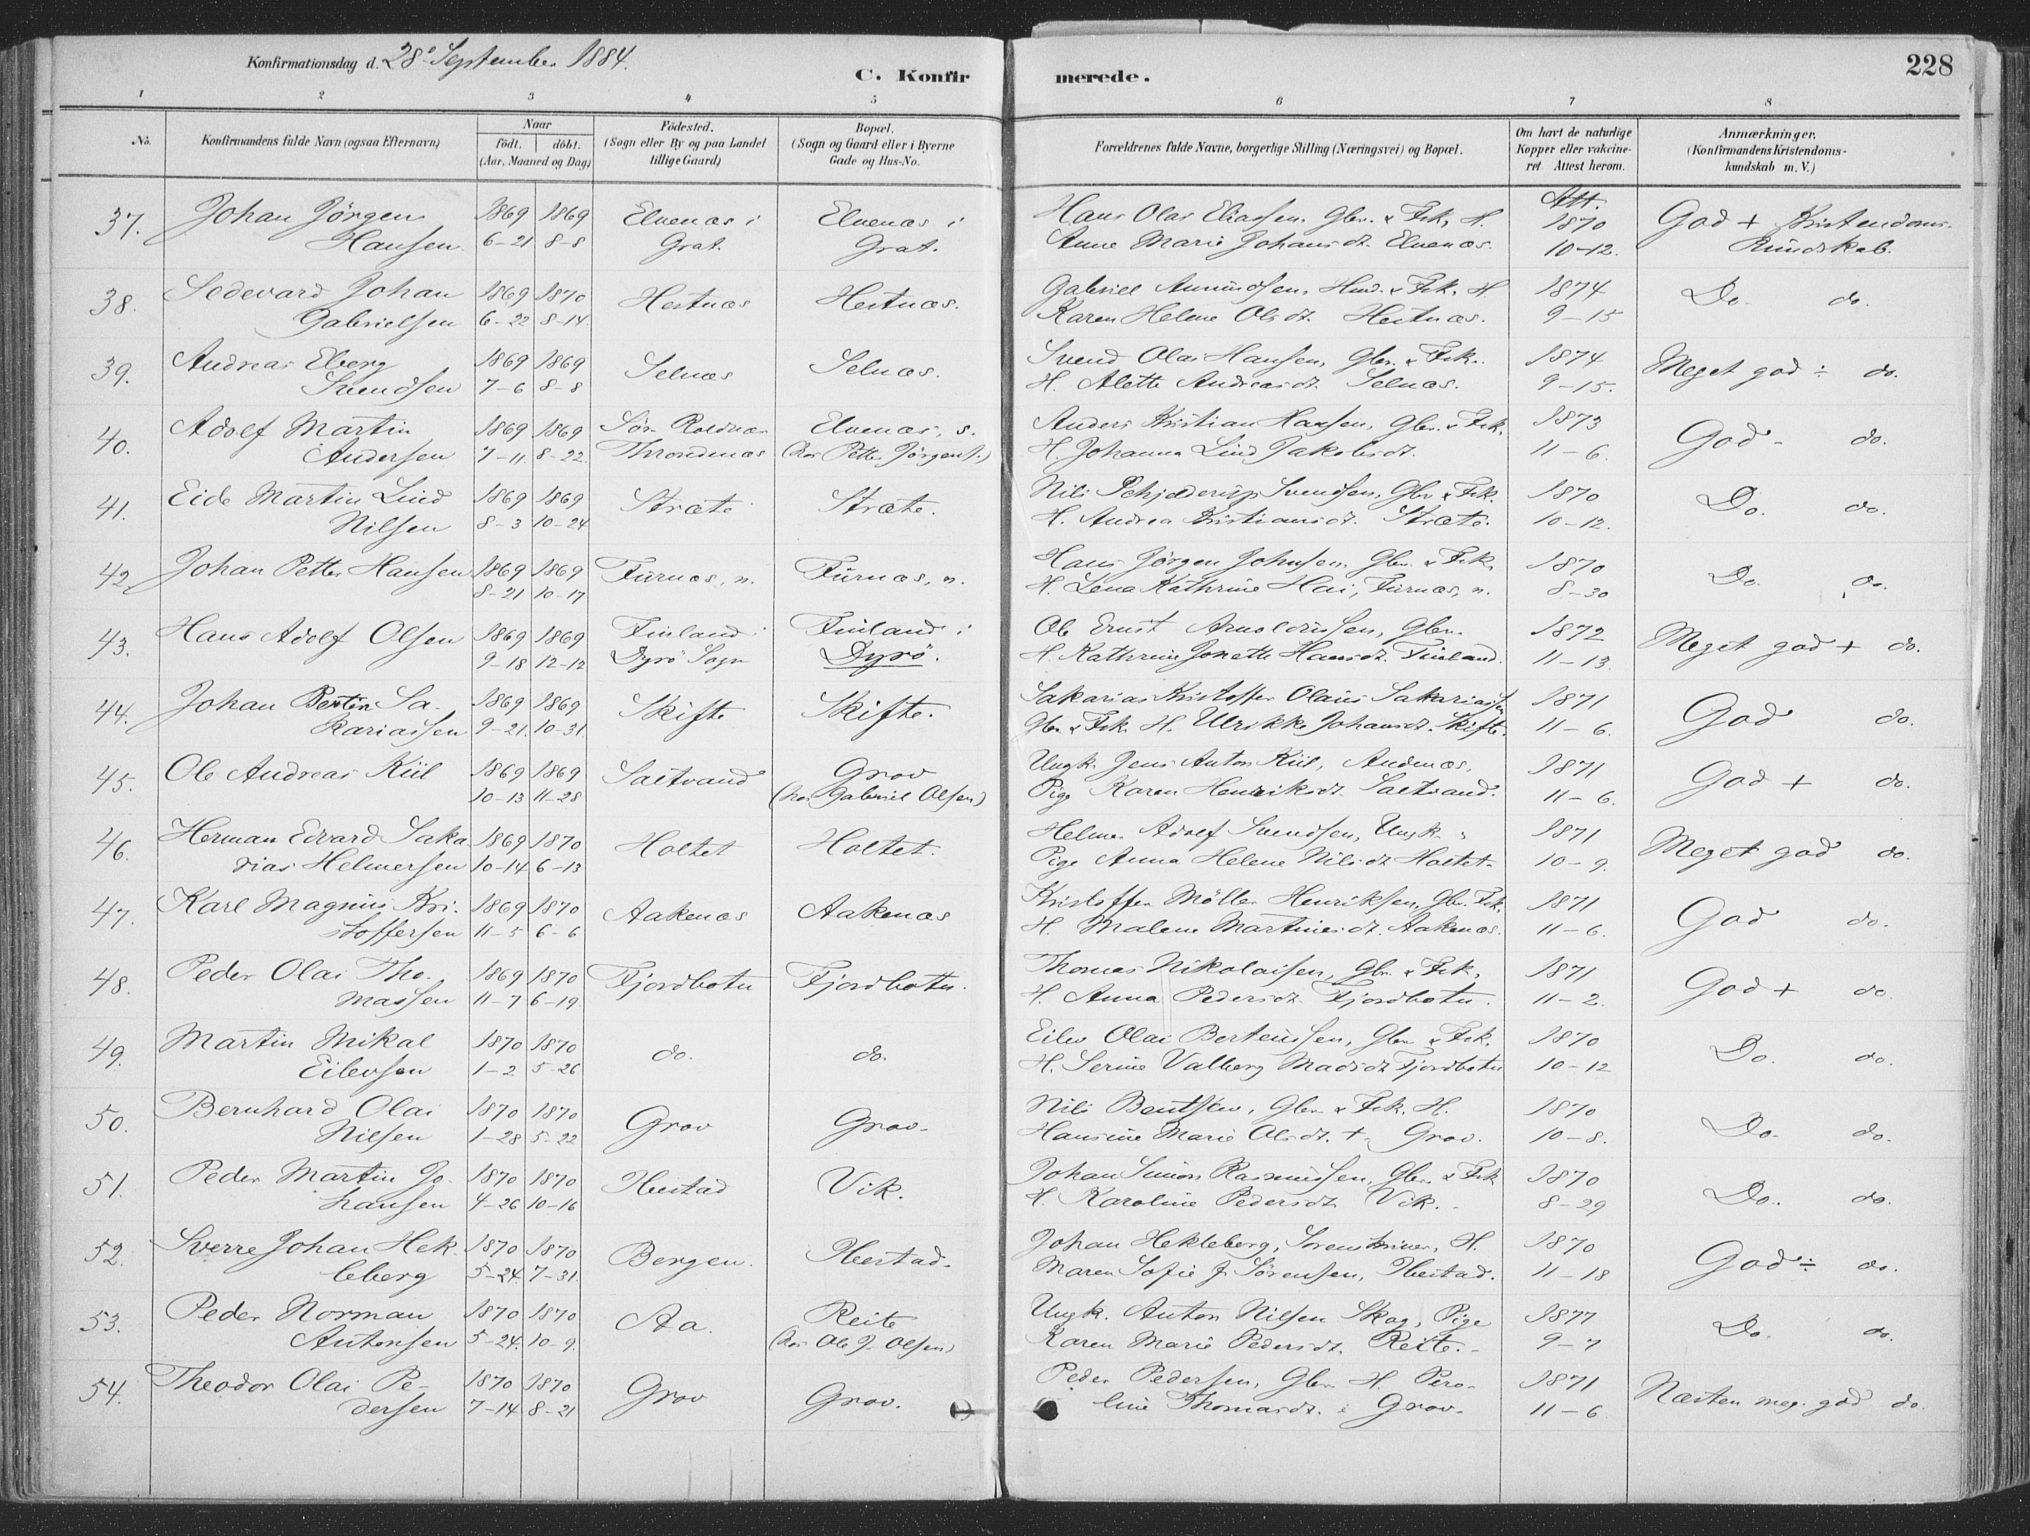 Konfirmationsdag d. 28de September 1884.
C. Konfirmerede.
228
1 2 3 4 5 6 7 8
No.
Konfirmandens fulde Navn (ogsaa Efternavn)
Naar
födt. döbt.
(Aar, Maaned og Dag)
Födested.
(Sogn eller By og paa Landet
tillige Gaard)
Bopæl.
(Sogn og Gaard eller i Byerne
Gade og Hus-No.
Forældrenes fulde Navne, borgerlige Stilling (Næringsvei) og Bopæl.
Om havt de naturlige
Kopper eller vakcine-
ret Attest herom.
Anmærkninger.
(Konfirmandens Kristendoms-
kundskab m. V.)
37. Johan Jörgen 1869 1869 Elvenæs i Elvenæs i Hans Olai Eliassen, Gbr. & Fsk. H. Att. 1870 God + Kristendoms-
Hansen 6-21 8-8 Grat. Grat. Anne Marie Johansdt. Elvenæs. 10-12. Kundskab.
38. Sedevard Johan 1869 1870 Hestnæs Hestnæs. Gabriel Amundsen, Husm. & Fsk. H. 1874 Do. do.
Gabrielsen 6-22 8-14. Karen Helene Olsdt. Hestnæs. 9-15
39. Andreas Eberg 1869 1869 Selnæs Selnæs. Svend Olai Hansen, Gbr. & Fsk. 1874 Meget god ÷ do.
Svendsen 7-6 8-8 H. Alette Andreasdt. Selnæs. 9-15.
40. Adolf Martin 1869 1869 Sör Roldnæs Elvenæs, s. Anders Kristian Hansen, Gbr. & Fsk. 1873 God - do.
Andersen 7-11. 8-22. Throndenæs (hos Petter Jörgens.) H. Johanna Lind Jakobsdt. 11-6.
41. Eide Martin Lind 1869 1869 Stræte Stræte. Nils Schjelderup Svendsen, Gbr & Fsk. 1870 Do. do.
Nilsen 8-3 10-24 H. Andrea Kristiansdt. Stræte. 10-12.
42. Johan Petter Hansen 1869 1869 Furnæs, n. Furnæs, n. Hans Jörgen Johnsen, Gbr. & Fsk. 1870 Do. do.
8-21 10-17 H. Lena Kathrine Hai, Furnæs, n. 8-30
43. Hans Adolf Olsen 1869 1869 Finland i Finland i Ole Ernst Arnoldussen, Gbr. 1872 Meget god + do.
9-18 12-12 Dyrö Sogn Dyrö. H. Kathrine Jonette Hansdt. Finland. 11-13.
44. Johan Bertin Sa- 1869 1869 Skifte Skifte. Sakarias Kristoffer Olaus Sakariassen 1871 God do.
kariassen 9-21. 10-31. Gbr. & Fsk. H. Ulrikke Johansdt. Skifte. 11-6.
45. Ole Andreas Kiil 1869 1869 Saltvand Grov Ungk. Jens Anton Kiil, Andenæs, 1871 God + do.
10-13 11-28 (hos Gabriel Olsen) Pige Karen Henriksdt. Saltvand. 11-6.
46. Herman Edvard Saka 1869 1870 Holtet Holtet. Helmer Adolf Svendsen, Ungk. 1871 Meget god do.
rias Helmersen 10-14 6-13 Pige Anna Helene Nilsdt Holtet. 10-9.
47. Karl Magnus Kri- 1869 1870 Aakenæs Aakenæs Kristoffer Möller Henriksen, Gbr. Fsk. 1871 God do.
stoffersen 11-5 6-6 H. Malene Martinesdt. Aakenæs. 11-6.
48. Peder Olai Tho- 1869 1870 Fjordbotn Fjordbotn. Thomas Nikolaisen, Gbr. & Fsk. 1871 God + do.
massen 11-7 6-19. H. Anna Pedersdt. Fjordbotn. 11-2.
49. Martin Mikal 1870 1870 do. do. Eilev Olai Berteussen, Gbr & Fsk. 1870 Do. do.
Eilevsen 1-2 5-26 H. Serine Valberg Madsdt Fjordbotn 10-12
50. Bernhard Olai 1870 1870 Grov Grov. Nils Bentsen, Gbr & Fsk. H. 1870 Do. do.
Nilsen 1-28 5-22 Hansine Marie Olsdt. + Grov. 10-8.
51. Peder Martin Jo- 1870 1870 Ibestad Vik. Johan Simon Rasmussen, Gbr. & Fsk 1870 Do. do.
hansen 4-26 10-16 H. Karoline Pedersdt Vik. 8-29
52. Sverre Johan Hek- 1870 1870 Bergen. Ibestad. Johan Hekleberg, Sorenskriver, H. 1870 God ÷ do.
leberg 5-24. 7-31. Maren Sofie f. Sörensen, Ibestad. 11-18
53. Peder Norman 1870 1870 Aa. Reite Ungk. Anton Nilsen Skog, Pige 1877 Do. do.
Antonsen 5-24. 10-9. (hos Ole J. Olsen) Karen Marie Pedersdt. Reite. 9-7
54. Theodor Olai Pe- 1870 1870 Grov Grov. Peder Pedersen, Gbr H. Pero- 1871 Næsten meg. god do.
dersen 7-14 8-21 line Thomasdt. Grov. 11-6